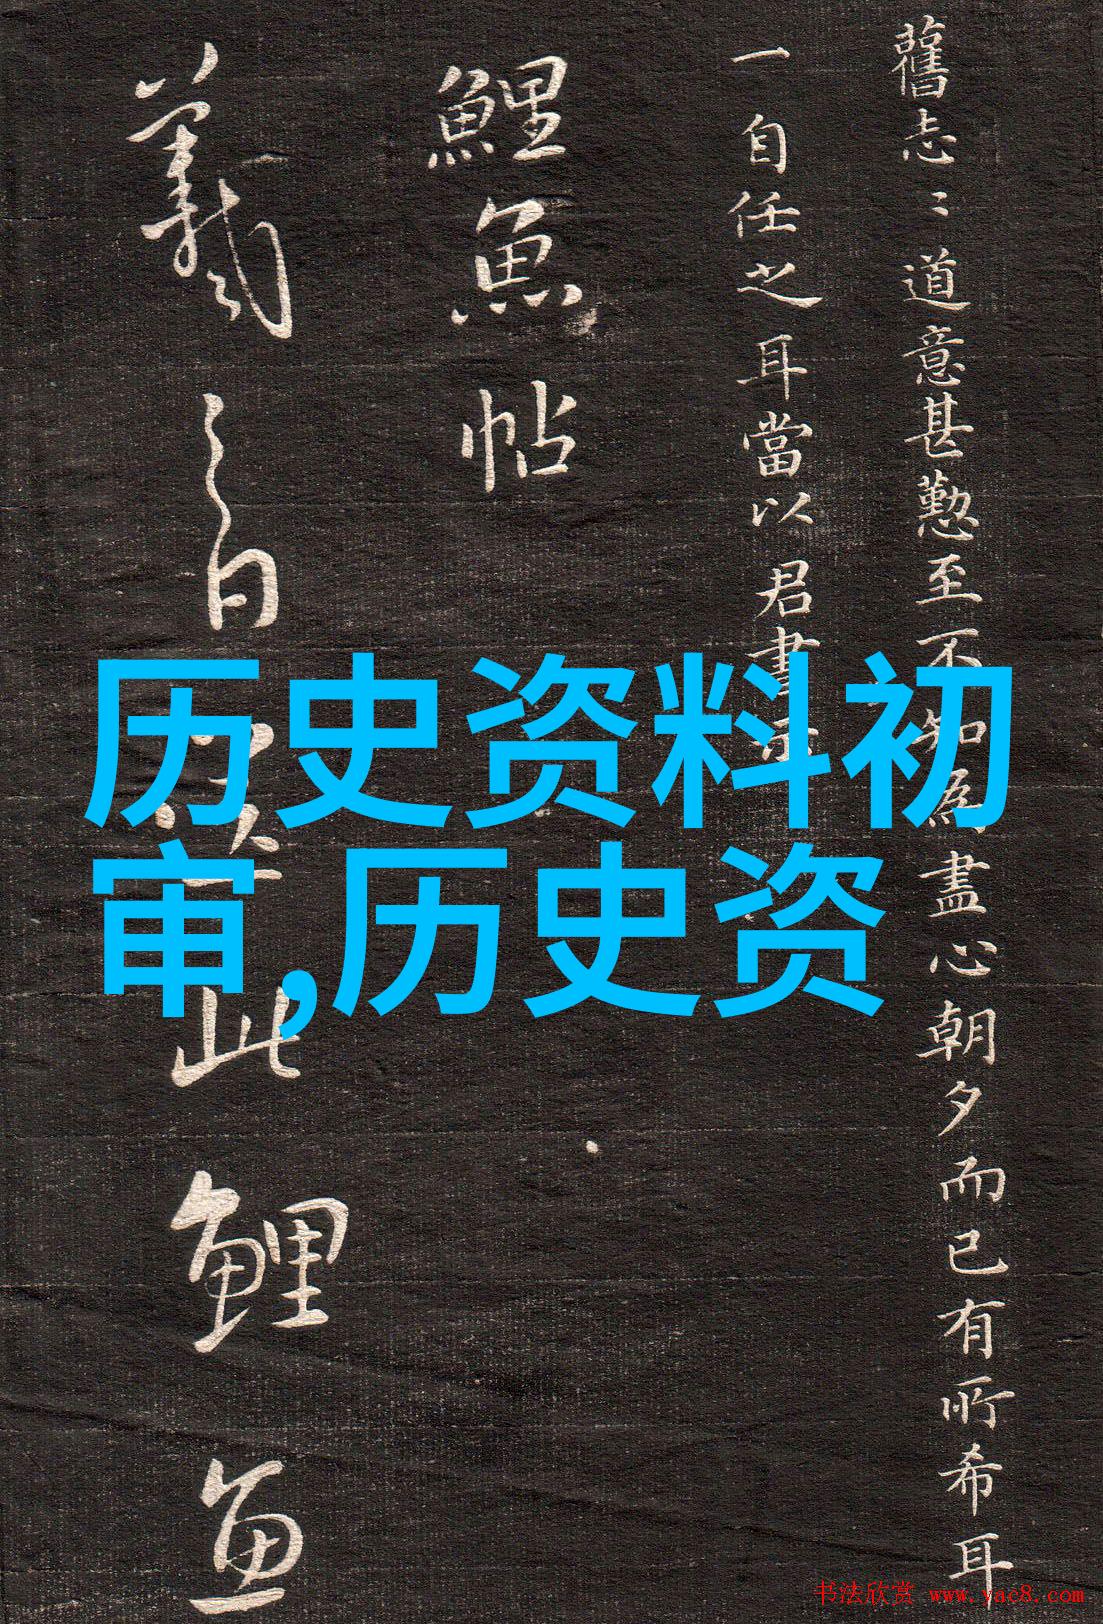 舊志〻道意甚懃至不知為盡心朝夕而已有所希耳
一自任之耳當以君書示
鯉魚帖
羲之白送此鯉魚
历史资料初
审,历史资
书法欣赏 www.yac8.com